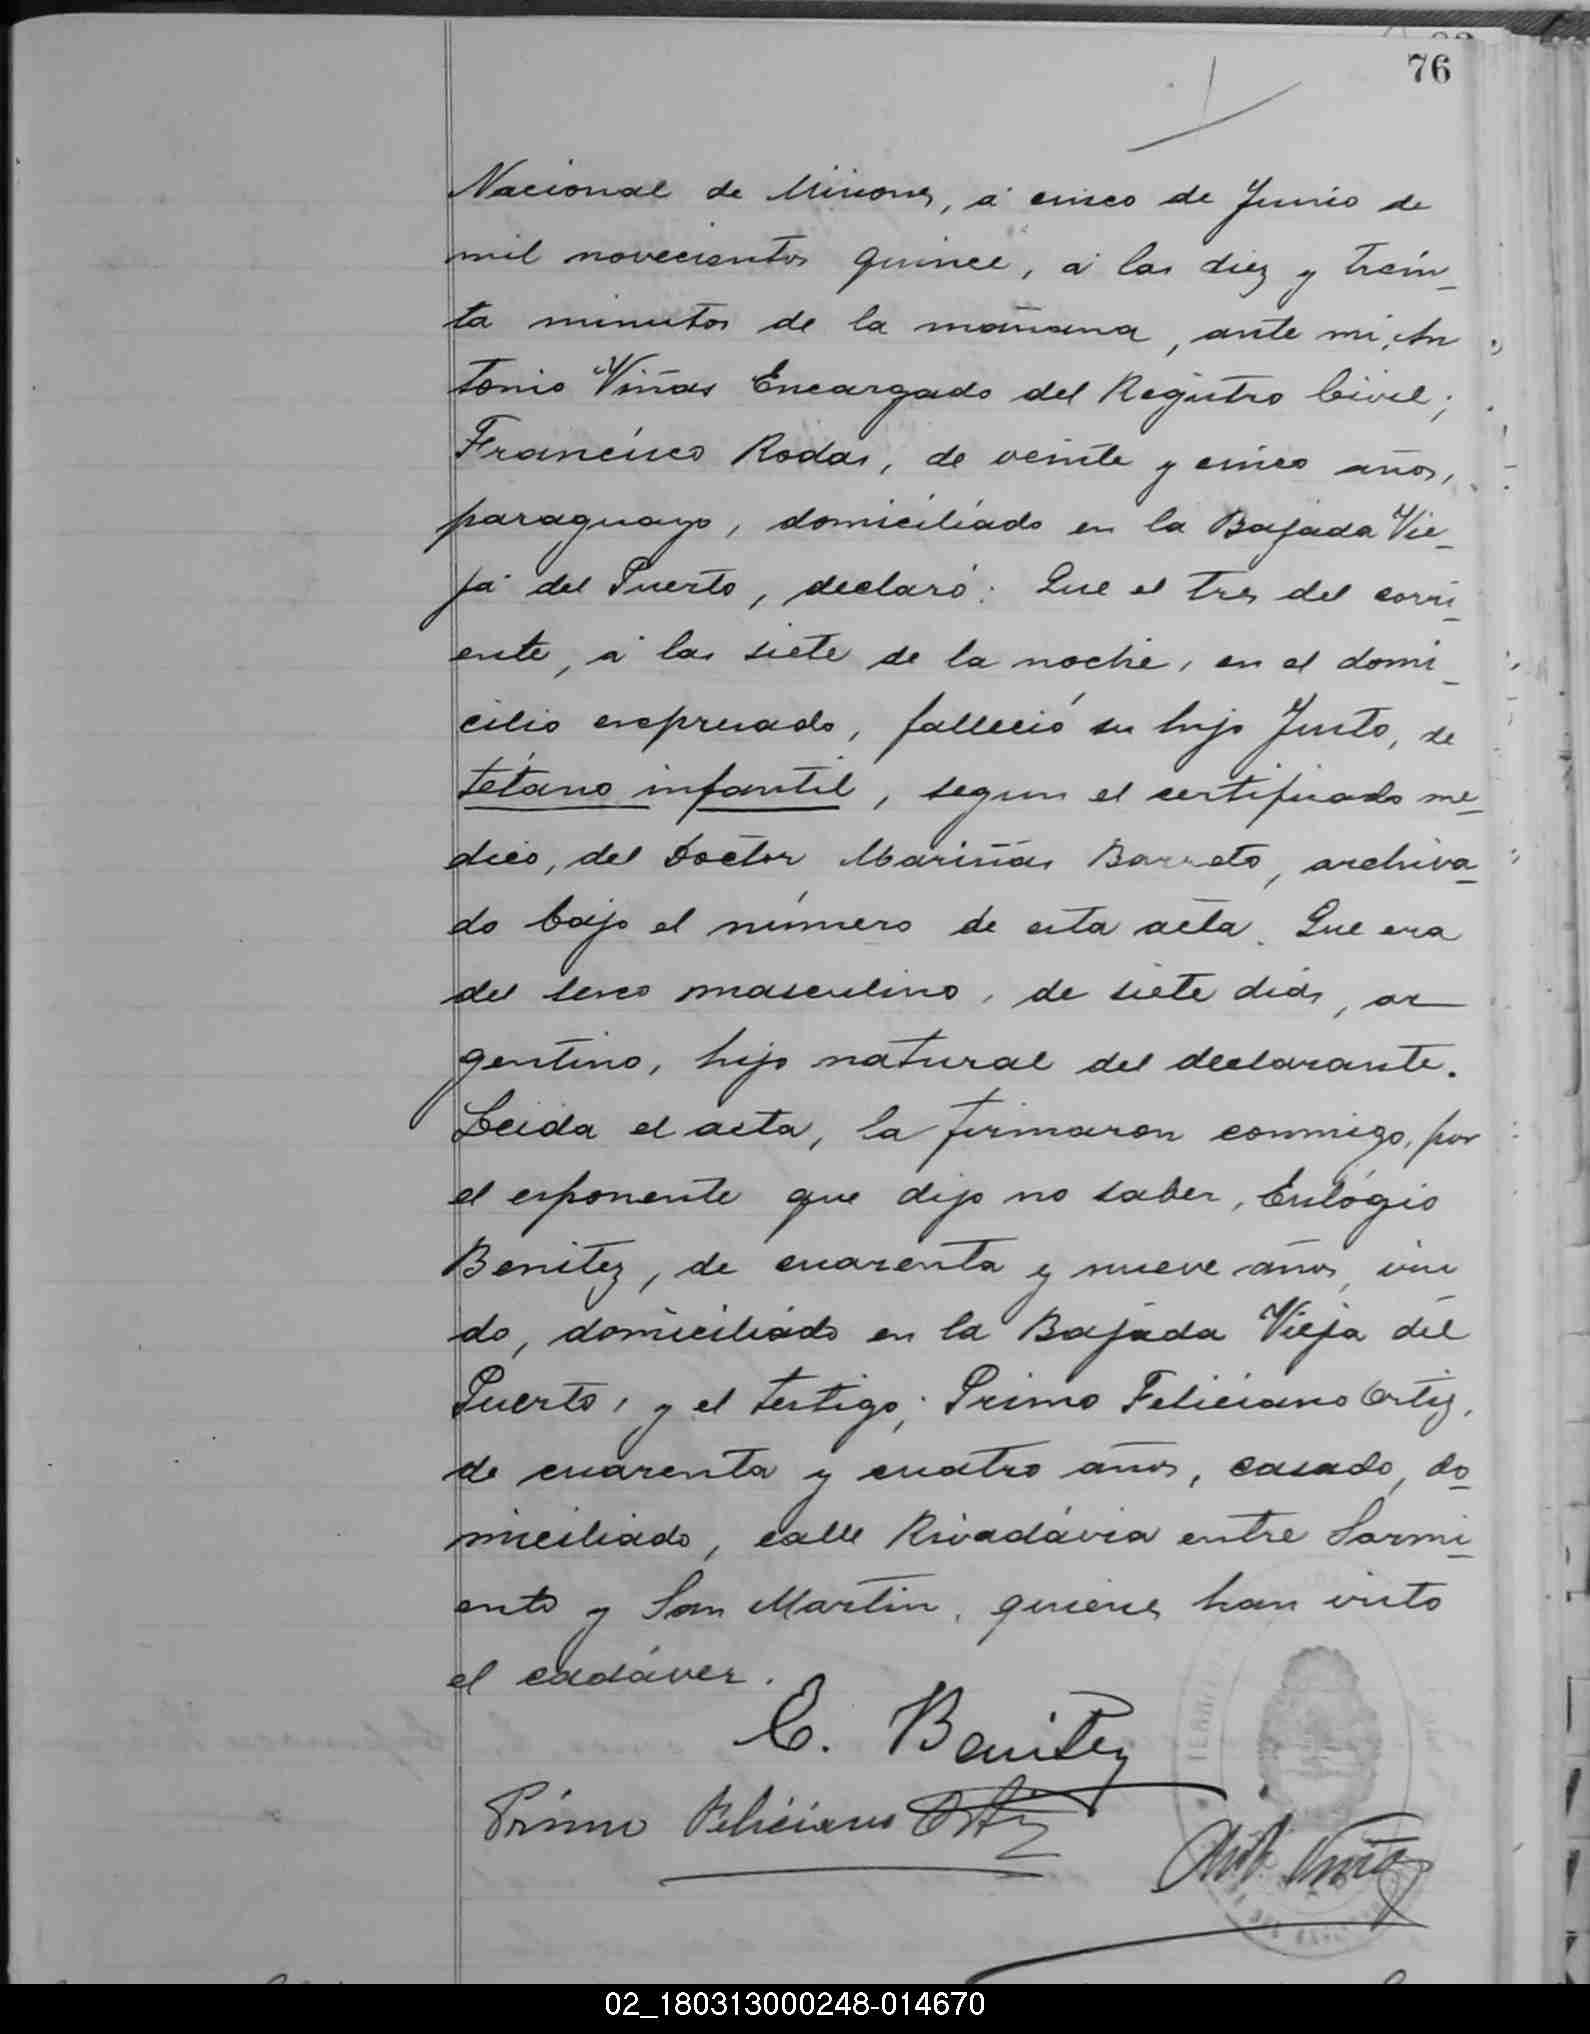 76
Nacional de Misiones, á cinco de Junio de
mil novecientos quince, á las diez y trein_
ta minutos de la mañana, ante mi, An
tonio Viñas Encargado del Registro Civil;
Francisco Rodas, de veinte y cinco años,
paraguayo, domiciliado en la Bajada Vie_
ja del Puerto, declaró: Que el tres del corri_
ente, á las siete de la noche, en el domi_
cilio expresado, falleció su hijo Justo, de
tétano infantil, segun el certificado me_
dico, del Doctor Mariñas Barreto, archiva_
do bajo el número de esta acta. Que era
del sexo masculino, de siete dias, ar_
gentino, hijo natural del declarante.
Leida el acta, la firmaron conmigo, por
el exponente que dijo no saber, Eulógio
Benitez, de cuarenta y nueve años, viu_
do, domiciliado en la Bajada Vieja del
Puerto, y el testigo; Primo Feliciano Ortiz,
de cuarenta y cuatro años, casado, do_
miciliado, calle Rivadávia entre Sarmi_
ento y San Martin, quienes han visto
el cadáver.
E. Benitez
Primo Feliciano Ortiz
Ant. Viñas
02_180313000248-014670